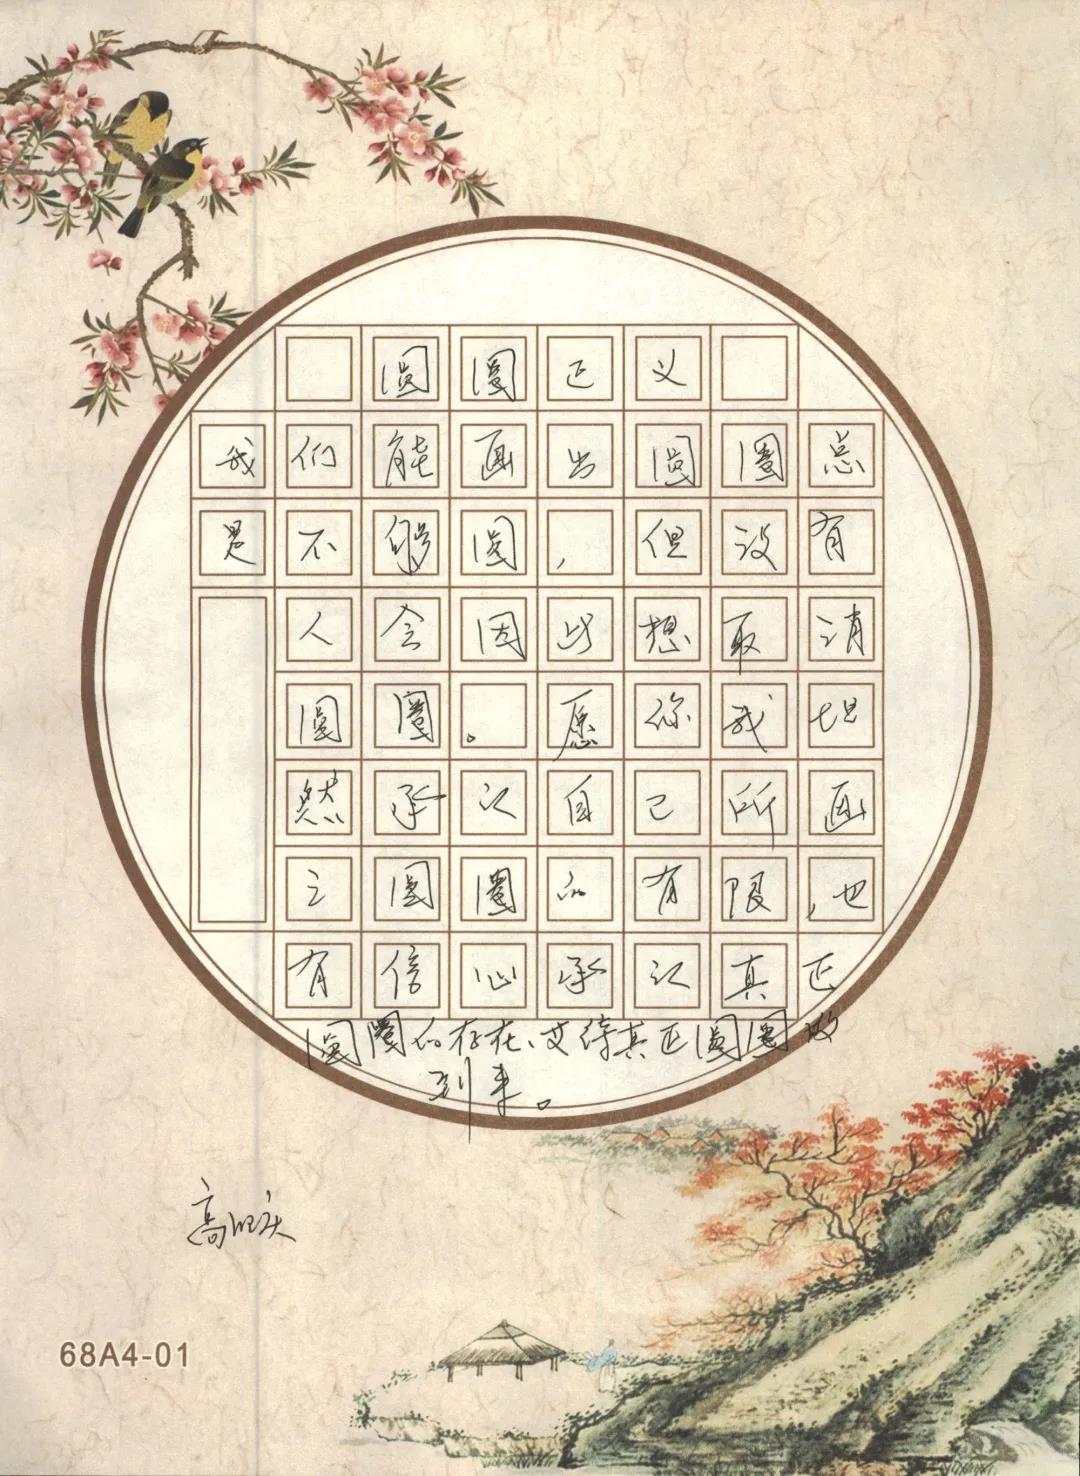 圆圈正义
我们能画出圆圈总
是不够圆，但没有
人会因此想取消
圆圈。愿你我坦
然承认自己所画
之圆圈的有限，也
有信心承认真正
圆圈的存在、艾待真正圆圈的
到来。
高旺庆
68A4-01